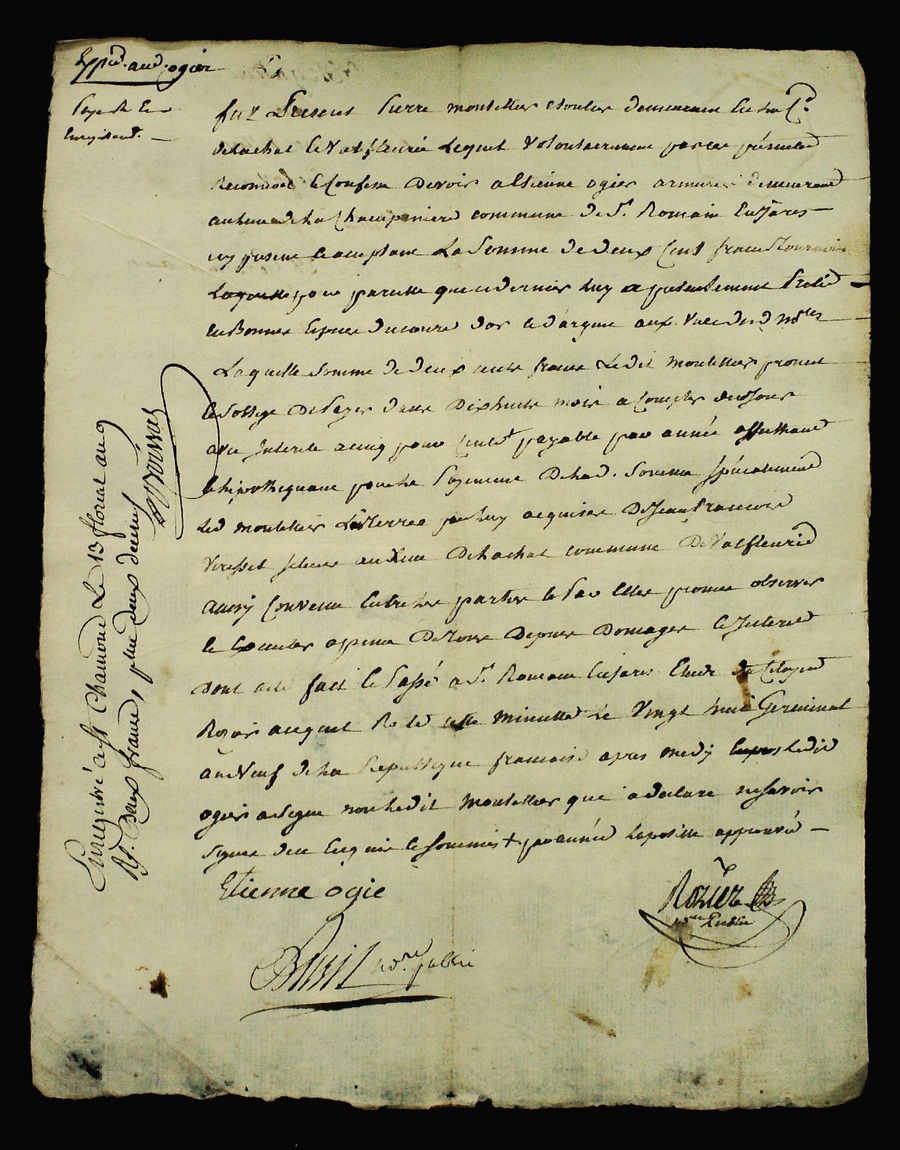 Expd. aud. ogier
Paye et En
Enregistrent.
fut Présent Pierre montellier cloutier demeurant en la Ce.
delachal de Valfleurie Lequel Volontairement par ces présentes
Reconnoit et Confesse Devoir a Etienne ogier armurier demeurant
au lieu de La Champinierre commune de St. Romain En Jares
icy présent et acceptant La Somme de deux Cent francs Tournois
Laquelle pour pareille que ce dernier luy a présentement Prêté
en Bonnes Espece du cours d'or et d'argent aux Vues des d. nores
Laquelle Somme de deux cents francs Le dit montellier promet
et s'oblige De Payer dans Dixhuits mois a Compter de ce Jour
avec Interets a cinq pour Cent payable par année affectant
et hipothequant pour le Payement De lad. Somme spécialement
Led montellier Les Terres par luy acquises De Jean francois
situées au lieu De lachal commune De Valfleurie
aussy Convenu Entre les parties et Par Elles promis observer
et Executer a peine De Tous Depens Domages et Interets
Dont acte fait et Passé a St. Romain en Jares Etude du Citoyen
Rozier auquel Reste cette minutte Le Vingt huit Germinal
an Neuf de la République francaise apres medy Ledit
ogier a Signé non Ledit montellier que a declaré ne savoir
Signer de ce Enquis et Sommés + par année Laposille approuvé —
Etienne ogié
Rozier
nore Public
nore. public
Enregistré a St Chamond Le 13 floréal an 9
Rs. Deux francs, plus deux decimes